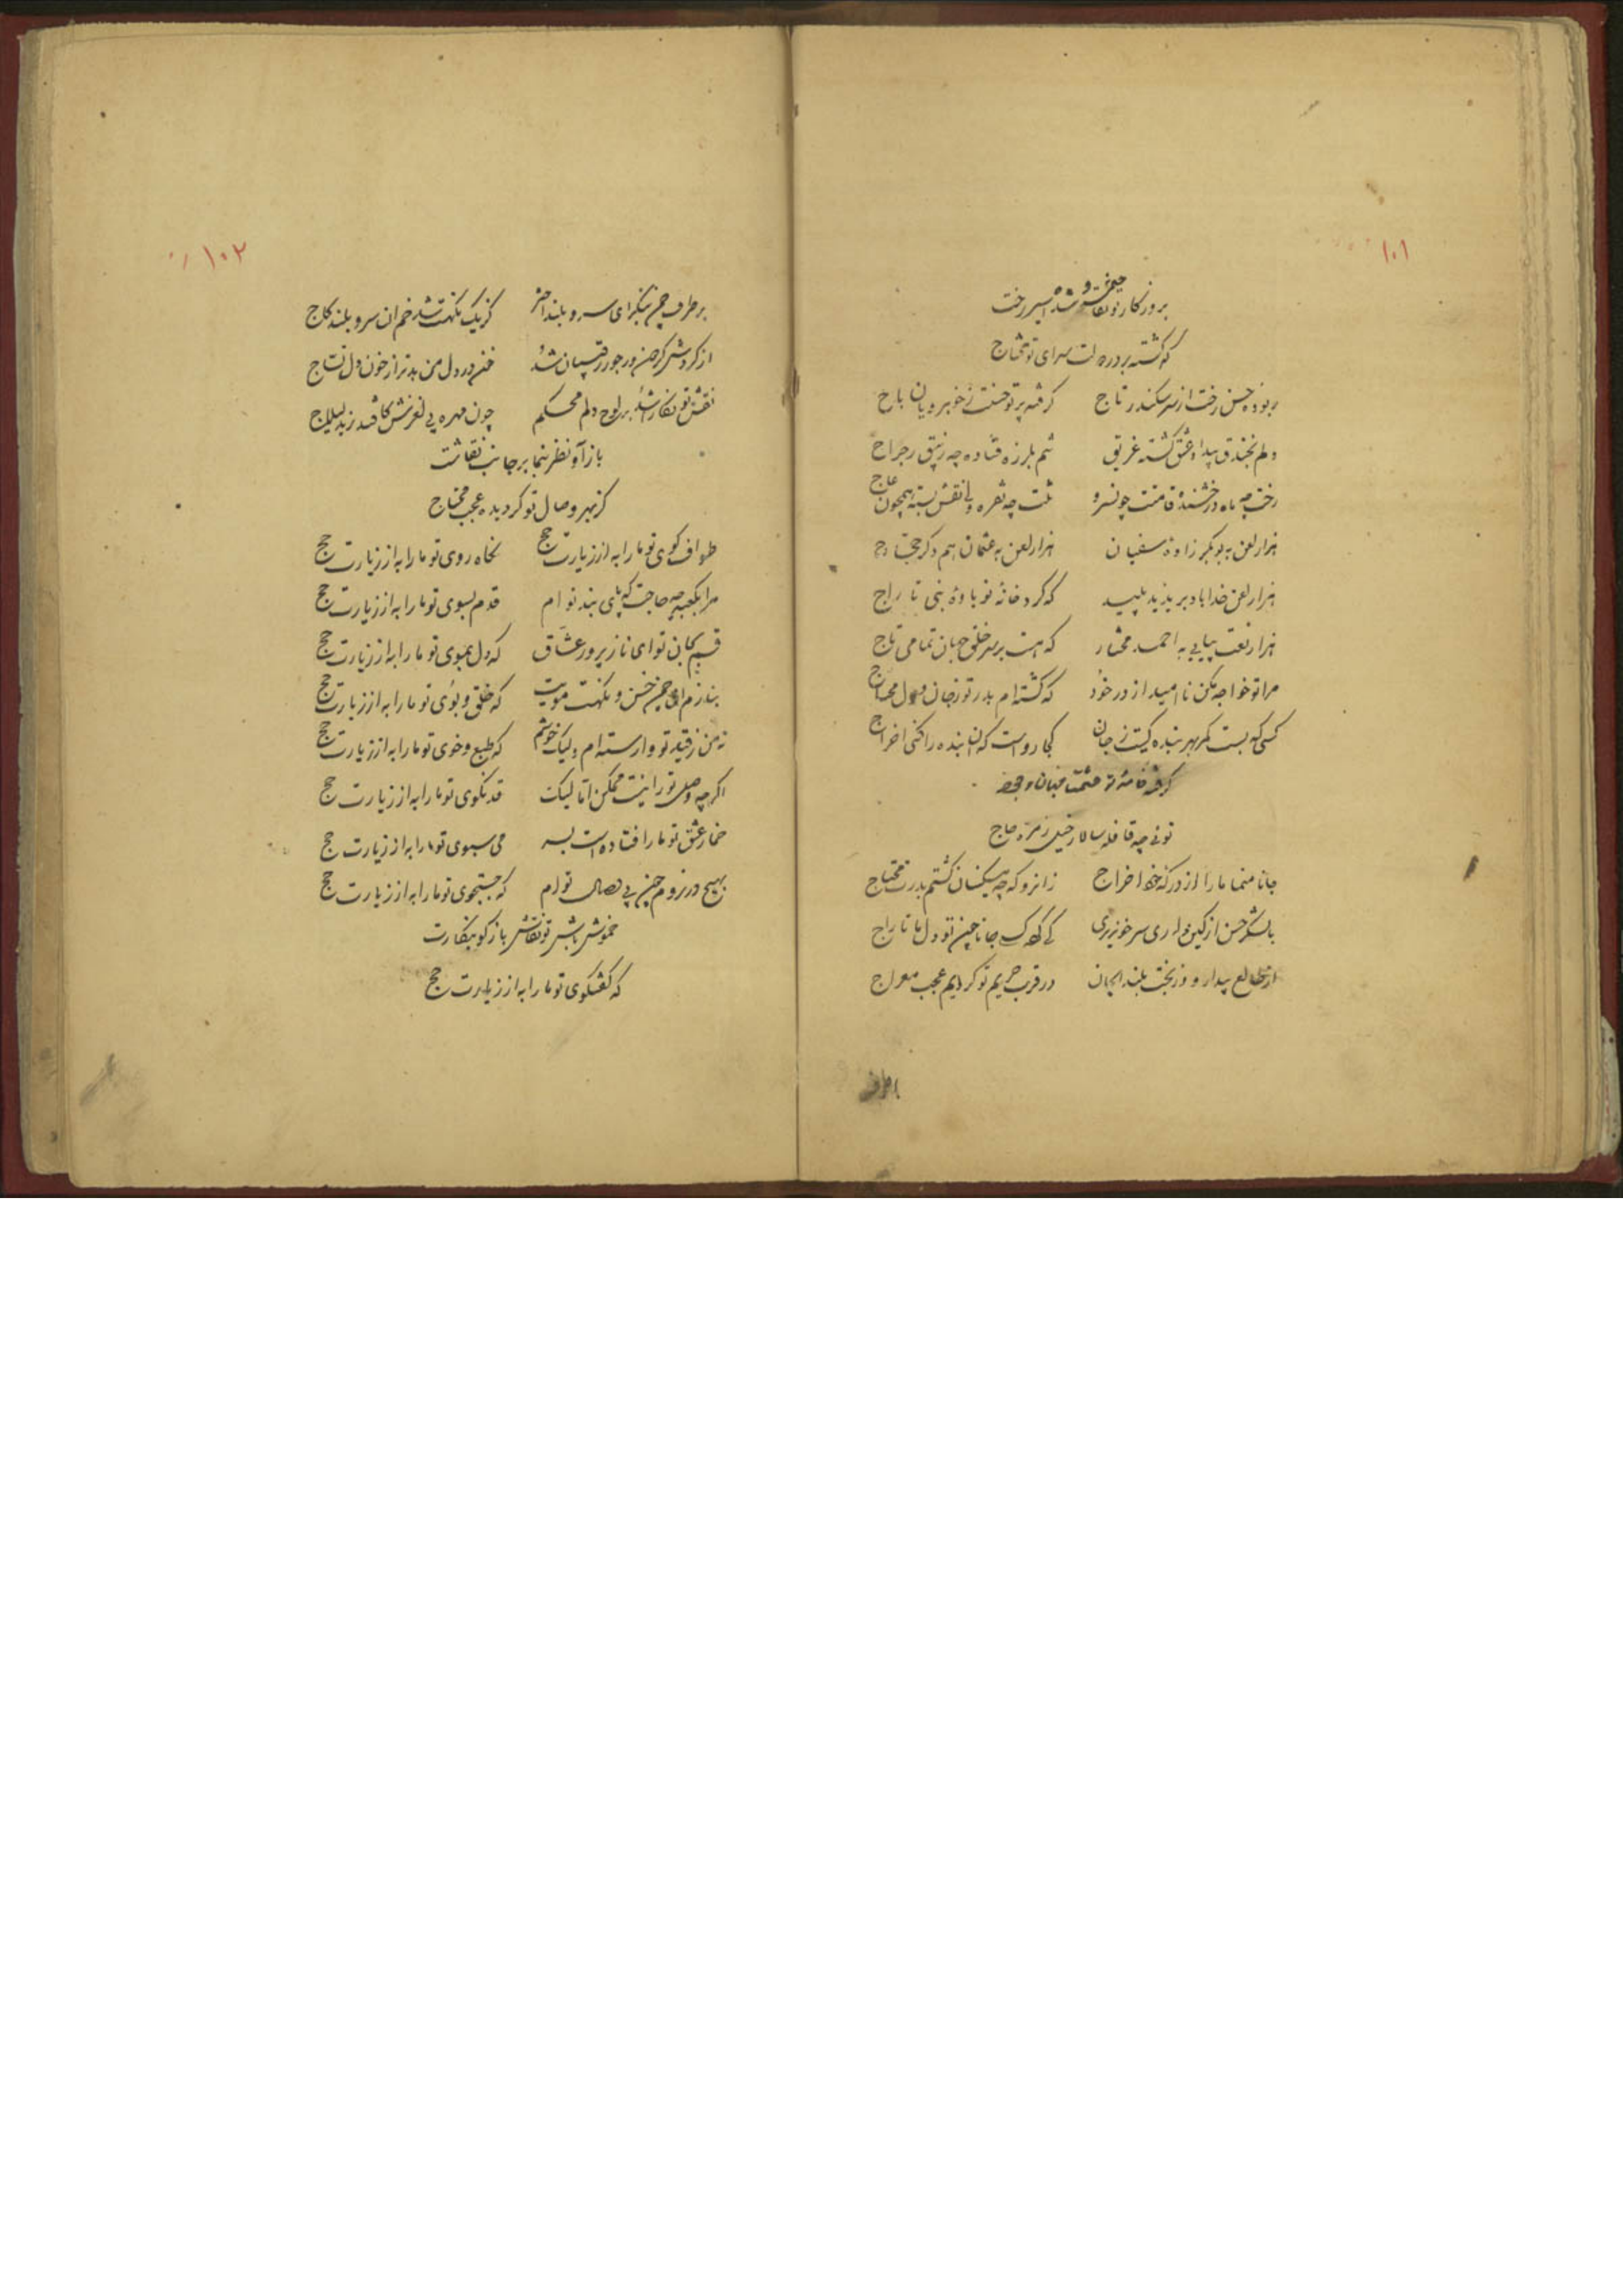 ۱۰۱
بروزکار تو نقاش شد اسیر رخت
که گشته بر در دولت سرای تو محتاج
ربوده حسن رخت از سر سکندر تاج گرفته پرتو حسنت ز خوبرویان باج
دلم بخندق بیداد عشق گشته غریق تنم بلرزه فتاده چه زیبق رجراج
رخت چه ماه درخشنده قامتت چو سرو تنت چه نقره ولی نقش بسته همچون عاج
هزار لعن به بوبکر زاده سفیان هزار لعن به عثمان هم دکر حجاج
هزار لعن خدا باد بر یزید پلید که کرد خانه نوباوه نبی تاراج
هزار نعت پیاپی به احمد مختار که هست بر سر خلق جهان تمامی تاج
مرا تو خواجه مکن ناامید از در خود که گشته ام بدر تو ز جان و دل محتاج
کسی که بست کمر بهر بندگیت ز جان کجا رواست که آن بنده را کنی اخراج
توئی چه قافله سالار خیل زمره حاج
جانا منما ما را از درکه خود اخراج زانرو که چه مسکینان گشتم بدرت محتاج
با لشکر حسن از کین داری سر خونریزی جانا چین تو دل ما تاراج
از طالع بیدار و وز بخت بلند ایجان در قرب حریم تو کردیم عجب معراج
بر طرف
۱۰۲
بر طرف چمن بنگر ای سرو بلند اختر کز یک نکهت شد خم آن سرو بلند کاج
از کردش کردون ور جور رقیبان شد خون در دل من بدتر از خون دل نساج
نقش تو نکارا شد بر لوح دلم محکم چون مهره پی لغزش کافتد
باز آو نظر بنما بر جانب نقاشت
کز بهر وصال تو کردیده عجب محتاج
طواف کوی تو ما را به از زیارت حج نکاه روی تو ما را به از زیارت حج
مرا بکعبه چه حاجت که پای بند تو ام قدم بسوی تو ما را به از زیارت حج
قسم بجان تو ای ناز پرور عشاق که دل ببوی تو ما را به از زیارت حج
بنازم ای چمن حسن و نکهت مویت که خلق و بوی تو ما را به از زیارت حج
نه من ز قید تو وارسته ام ولیک خوشم که طبع و خوی تو ما را به از زیارت حج
اکرچه وصل تو را نیست ممکن اما لیک قد نکوی تو ما را به از زیارت حج
خمار عشق تو ما را فتاده است بسر می سبوی تو ما را به از زیارت حج
بهیچ در نروم چون پی وصال تو ام که جستجوی تو ما را به از زیارت حج
خموش باش تو نقاش باز کو بنکارت
که گفتگوی تو ما را به از زیارت حج